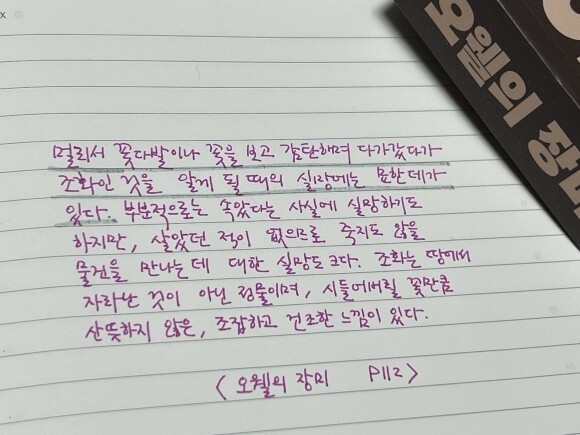 x
멀리서 꽃다발이나 꽃을 보고 감탄해며 다가갔다가
조화인 것을 알게 될 때의 실망에는 묘한데가
있다. 부분적으로는 속았다는 사실에 실망하기도
하지만, 살았던 적이 없으므로 죽지도 않을
물건을 만나는데 대한 실망도 크다. 조화는 땅에서
자라난 것이 아닌 정물이며, 시들어버릴 꽃만큼
산뜻하지 않은, 조잡하고 건조한 느낌이 있다.
< 오웰의 장미 P112 >
오웰의 장미